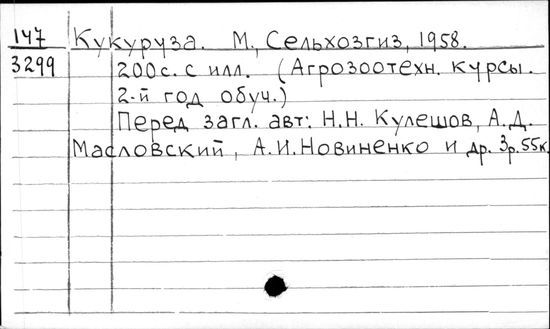 147 Кукуруза. М., Сельхозгиз, 1958.
3299 200с. с илл. (Агрозоотехн. курсы.
2-й год обуч.)
Перед загл. авт: Н.Н. Кулешов, А.Д.
Масловский, А.И. Новиненко и др. 3р.55к.